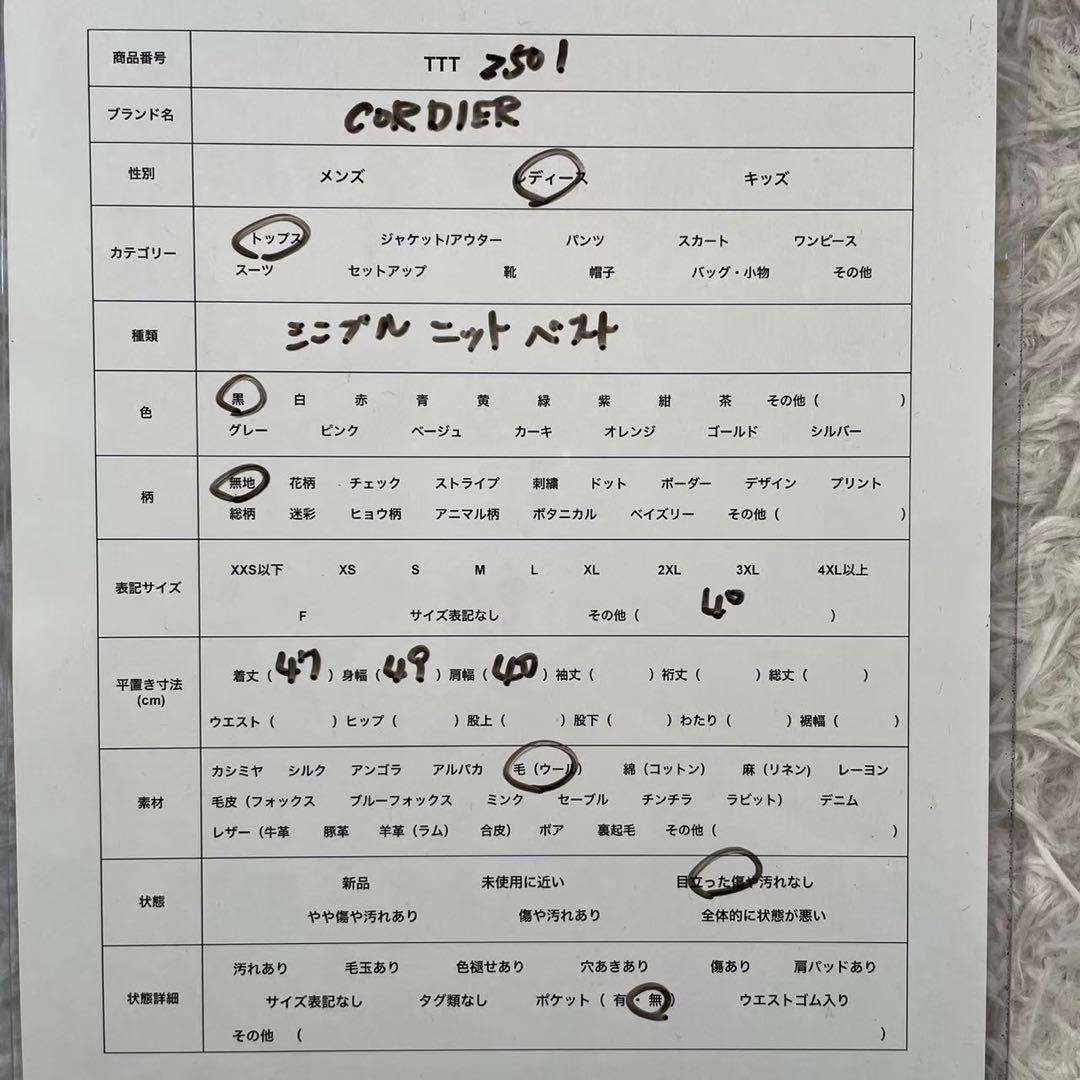 商品番号 TTT 2501
ブランド名 CORDIER
性別 メンズ レディース キッズ
カテゴリー トップス ジャケット/アウター パンツ スカート ワンピース
スーツ セットアップ 靴 帽子 バッグ・小物 その他
種類 ミニブル ニット ベスト
色 黒 白 赤 青 黄 緑 紫 紺 茶 その他（ ）
グレー ピンク ベージュ カーキ オレンジ ゴールド シルバー
柄 無地 花柄 チェック ストライプ 刺繍 ドット ボーダー デザイン プリント
総柄 迷彩 ヒョウ柄 アニマル柄 ボタニカル ペイズリー その他（ ）
表記サイズ XXS以下 XS S M L XL 2XL 3XL 4XL以上
F サイズ表記なし その他（ 40 ）
平置き寸法 (cm) 着丈（ 47 ）身幅（ 49 ）肩幅（ 40 ）袖丈（ ）裄丈（ ）総丈（ ）
ウエスト（ ）ヒップ（ ）股上（ ）股下（ ）わたり（ ）裾幅（ ）
素材 カシミヤ シルク アンゴラ アルパカ 毛（ウール） 綿（コットン） 麻（リネン) レーヨン
毛皮（フォックス ブルーフォックス ミンク セーブル チンチラ ラビット） デニム
レザー（牛革 豚革 羊革（ラム） 合皮） ボア 裏起毛 その他（ ）
状態 新品 未使用に近い 目立った傷や汚れなし
やや傷や汚れあり 傷や汚れあり 全体的に状態が悪い
状態詳細 汚れあり 毛玉あり 色褪せあり 穴あきあり 傷あり 肩パッドあり
サイズ表記なし タグ類なし ポケット（ 有・無 ） ウエストゴム入り
その他 （ ）